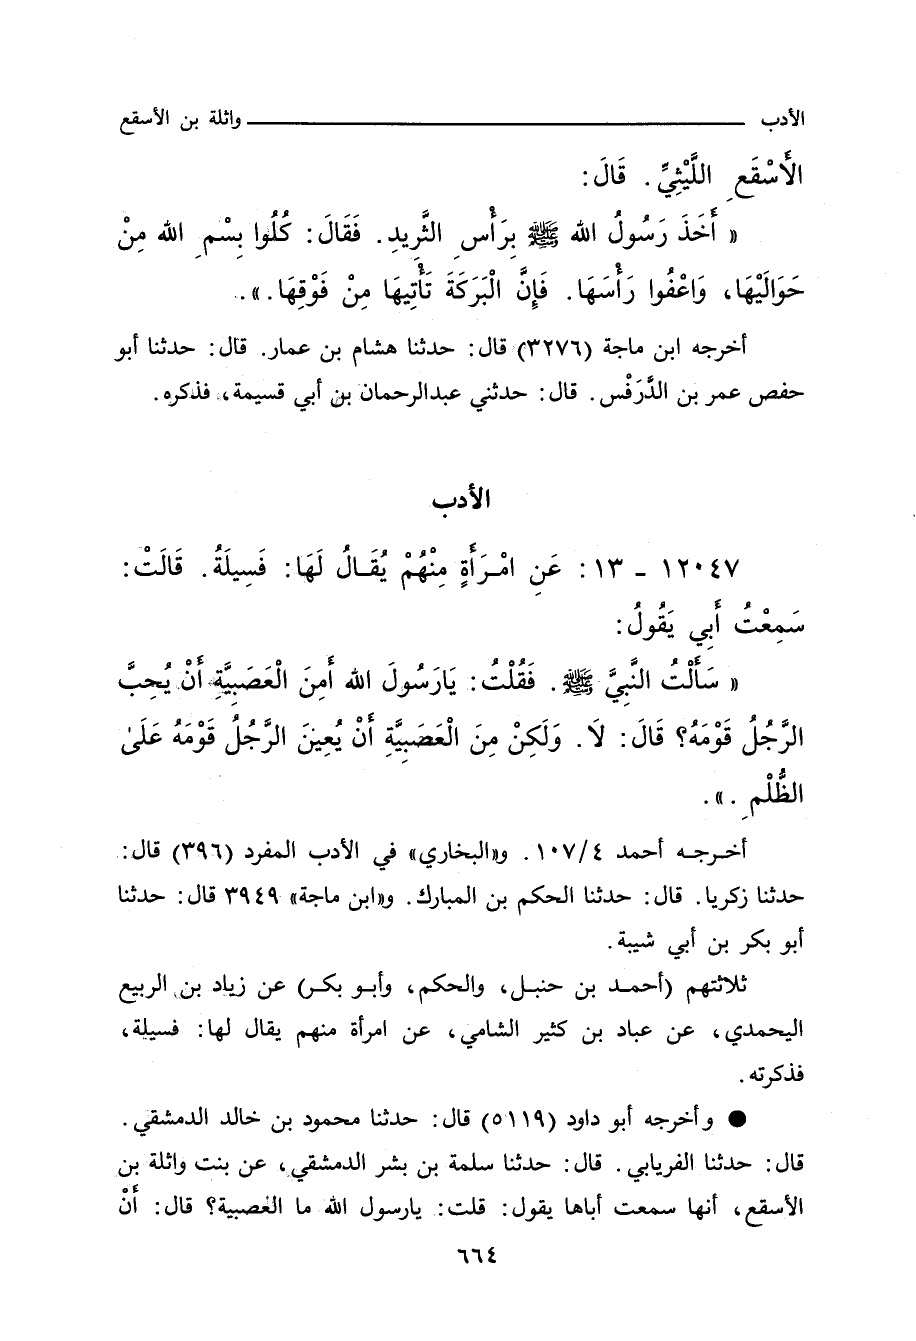 الأدب ــــــــــــــــــــ واثلة بن الأسقع
الأَسْقَعِ اللَّيْثِيِّ . قَالَ :
« أَخَذَ رَسُولُ الله ﷺ بِرَأْسِ الثَّرِيدِ . فَقَالَ : كُلُوا بِسْمِ الله مِنْ
حَوَالَيْهَا ، وَاعْفُوا رَأْسَهَا . فَإِنَّ الْبَرَكَةَ تَأْتِيهَا مِنْ فَوْقِهَا . » .
أخرجه ابن ماجة (٣٢٧٦) قال : حدثنا هشام بن عمار . قال : حدثنا أبو
حفص عمر بن الدَّرَفْس . قال : حدثني عبدالرحمان بن أبي قسيمة ، فذكره .
الأدب
١٢٠٤٧ ـ ١٣ : عَنِ امْرَأَةٍ مِنْهُمْ يُقَالُ لَهَا : فَسِيلَةُ . قَالَتْ :
سَمِعْتُ أَبِي يَقُولُ :
« سَأَلْتُ النَّبِيَّ ﷺ . فَقُلْتُ : يَارَسُولَ الله أَمِنَ الْعَصَبِيَّةِ أَنْ يُحِبَّ
الرَّجُلُ قَوْمَهُ ؟ قَالَ : لَا . وَلَكِنْ مِنَ الْعَصَبِيَّةِ أَنْ يُعِينَ الرَّجُلُ قَوْمَهُ عَلَىٰ
الظُّلْمِ . » .
أخرجه أحمد ١٠٧/٤ . و«البخاري» في الأدب المفرد (٣٩٦) قال :
حدثنا زكريا . قال : حدثنا الحكم بن المبارك . و«ابن ماجة» ٣٩٤٩ قال : حدثنا
أبو بكر بن أبي شيبة .
ثلاثتهم (أحمد بن حنبل ، والحكم ، وأبو بكر) عن زياد بن الربيع
اليحمدي ، عن عباد بن كثير الشامي ، عن امرأة منهم يقال لها : فسيلة ،
فذكرته .
● وأخرجه أبو داود (٥١١٩) قال : حدثنا محمود بن خالد الدمشقي .
قال : حدثنا الفريابي . قال : حدثنا سلمة بن بشر الدمشقي ، عن بنت واثلة بن
الأسقع ، أنها سمعت أباها يقول : قلت : يارسول الله ما العصبية ؟ قال : أَنْ
٦٦٤